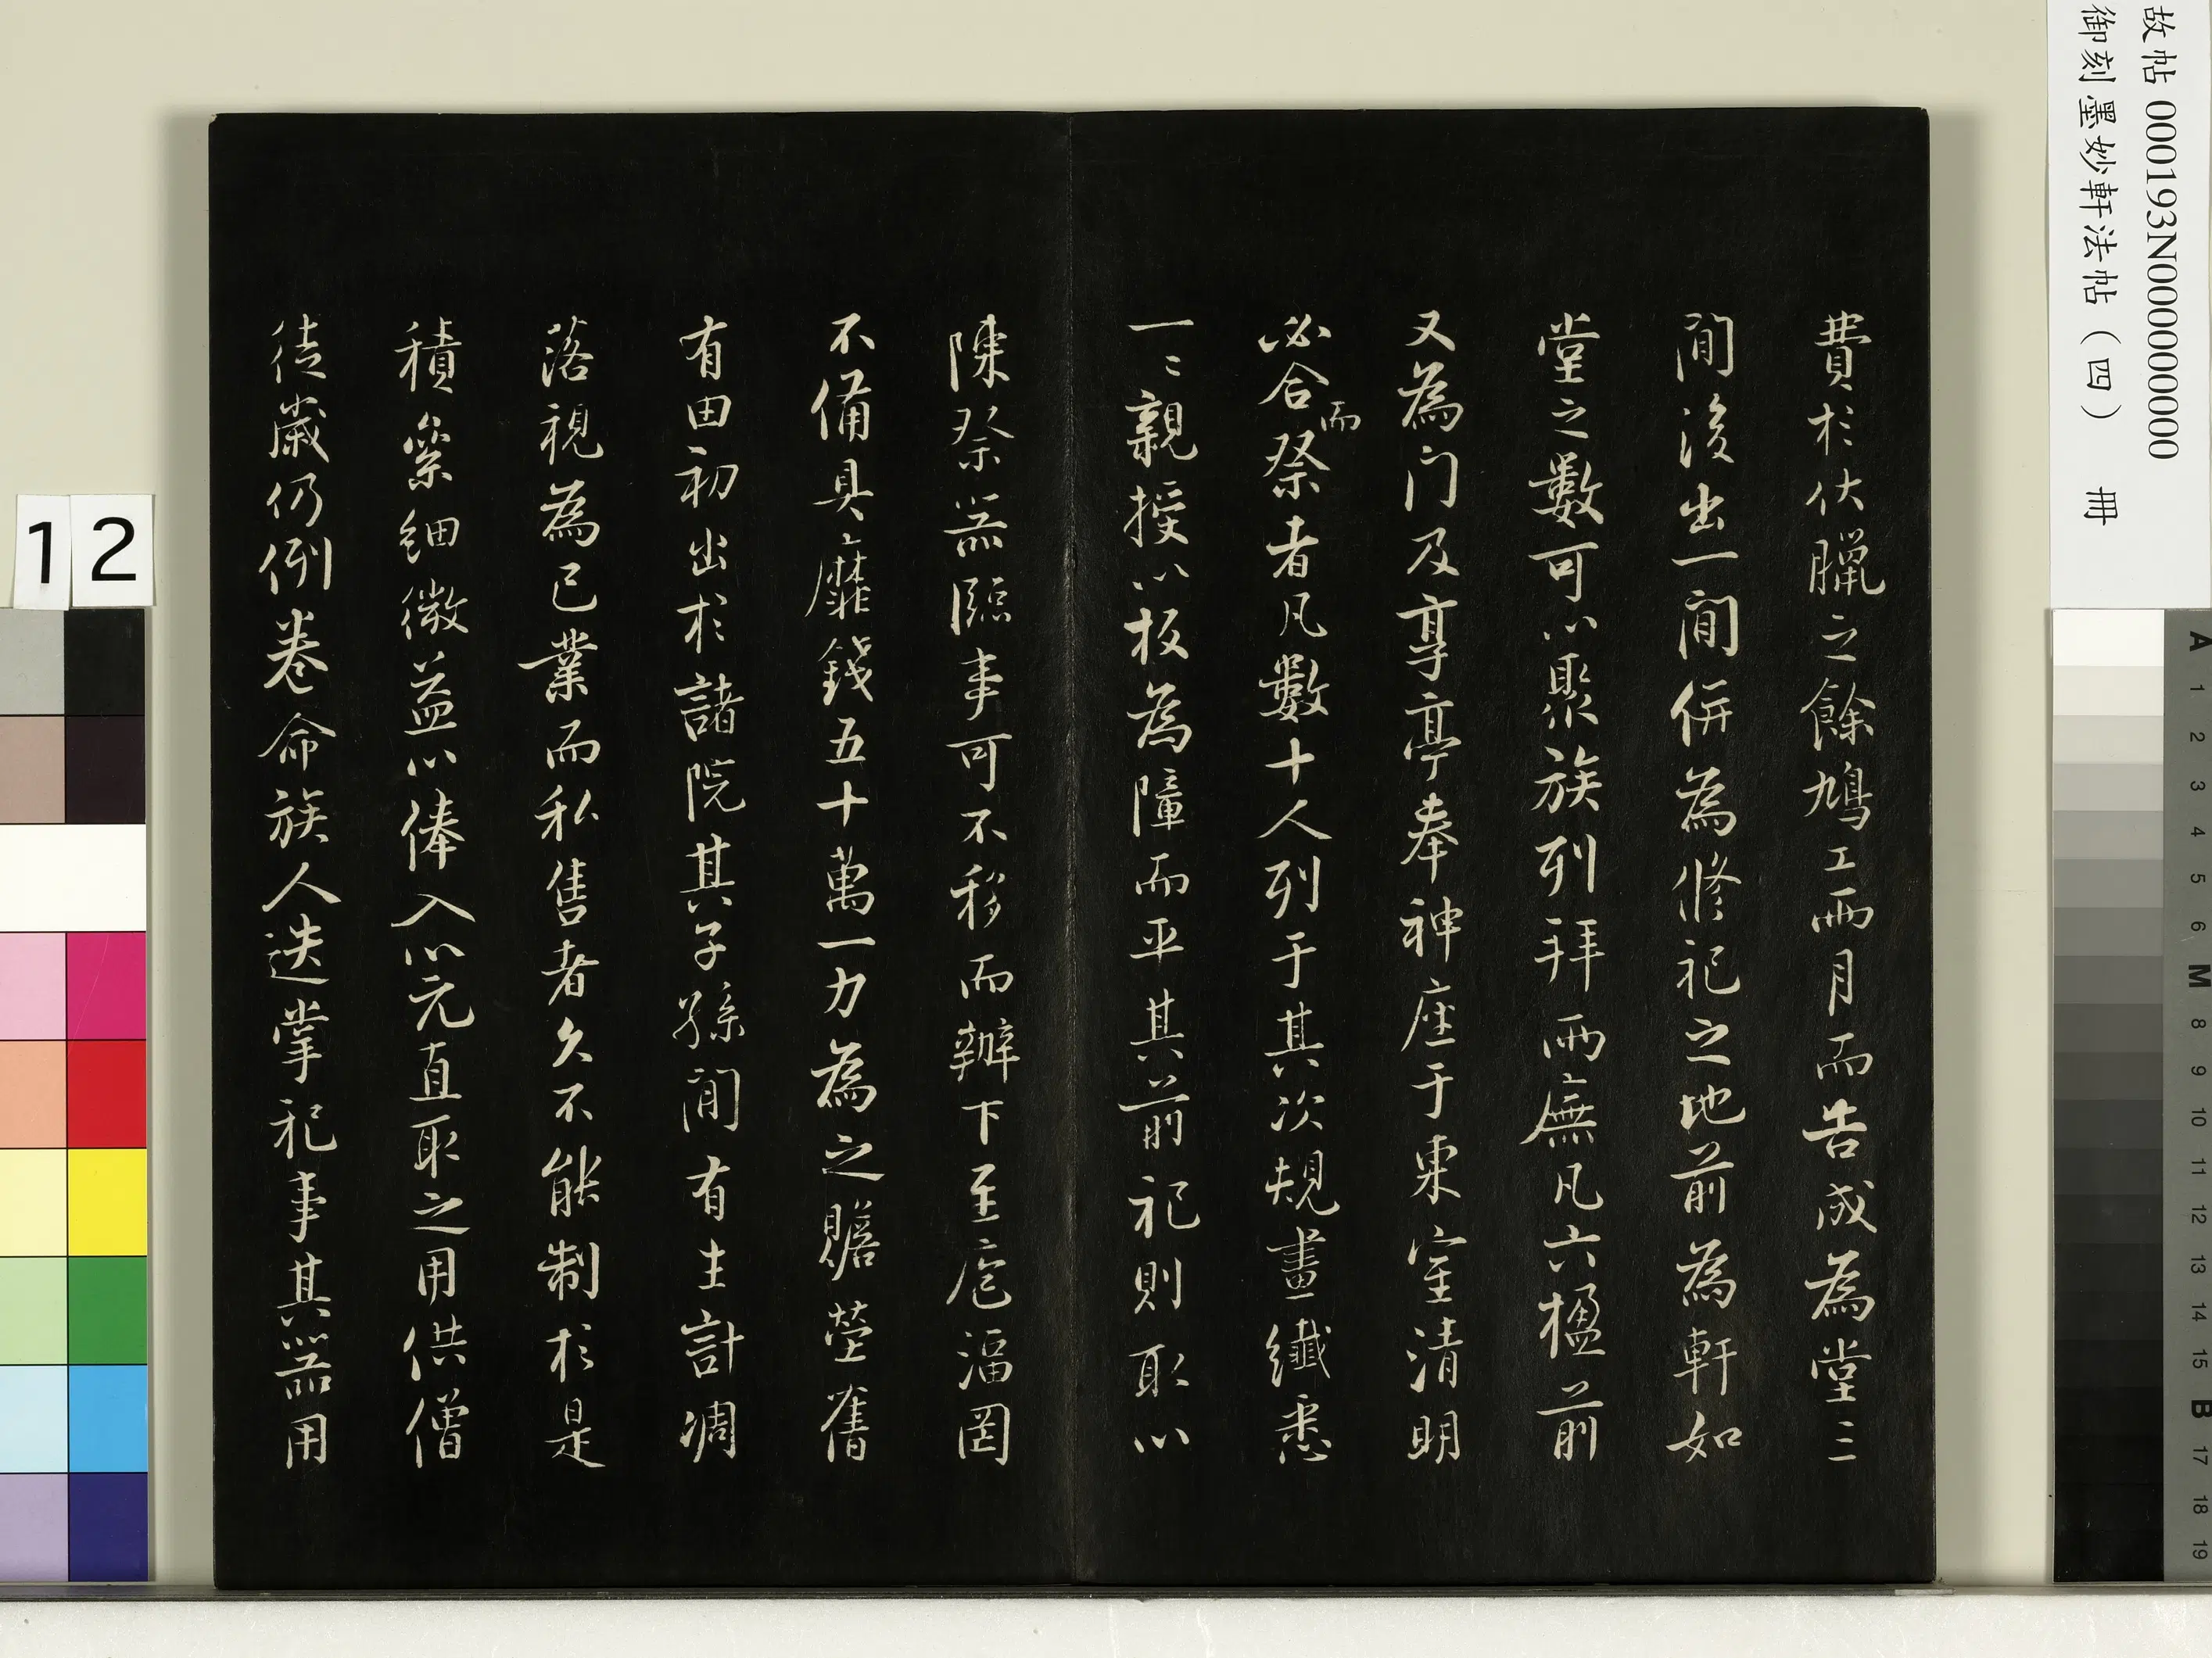 故帖 000193N000000000
御刻墨妙軒法帖（四） 冊
費於伏臘之餘鳩工兩月而告成為堂三
間後出一間併為修祀之地前為軒如
堂之數可以聚族列拜兩廡凡六楹前
又為门及享亭奉神座于東室清明
必合而祭者凡數十人列于其次規畫纖悉
一〻親授以板為障而平其前祀則取以
陳祭器臨事可不移而辦下至庖湢囷
不備具靡錢五十萬一力為之贍塋舊
有田初出於諸院其子孫間有生計凋
落視為己業而私售者久不能制於是
積絫細微益以俸入以元直取之用供僧
徒歲仍例卷命族人迭掌祀事其器用
12
A 1 2 3 4 5 6 M 8 9 10 11 12 13 14 15 B 17 18 19